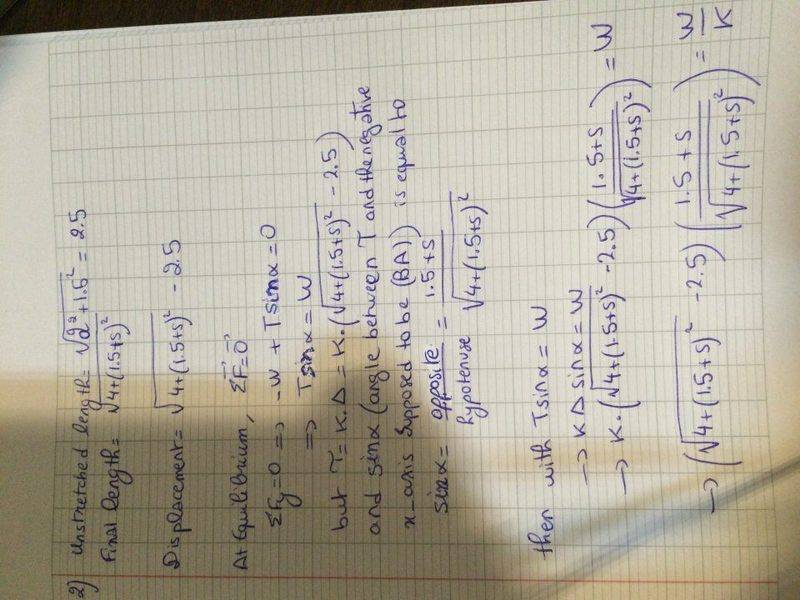 2) Unstretched length = √(2² + 1.5²) = 2.5
Final length = √(4+(1.5+s)²)
Displacement = √(4+(1.5+s)²) - 2.5
At Equilibrium, ΣF⃗=0⃗
ΣFy=0 => -W + T sinα = 0
=> T sinα = W
but T = K.Δ = K.(√(4+(1.5+s)²) - 2.5)
and sinα (angle between T and the negative
x-axis supposed to be (BA)) is equal to
sinα = opposite/hypotenuse = (1.5+s)/√(4+(1.5+s)²)
then with T sinα = W
→ K Δ sinα = W
→ K.(√(4+(1.5+s)²) - 2.5) ((1.5+s)/√(4+(1.5+s)²)) = W
→ (√(4+(1.5+s)²) - 2.5) ((1.5+s)/√(4+(1.5+s)²)) = W/K